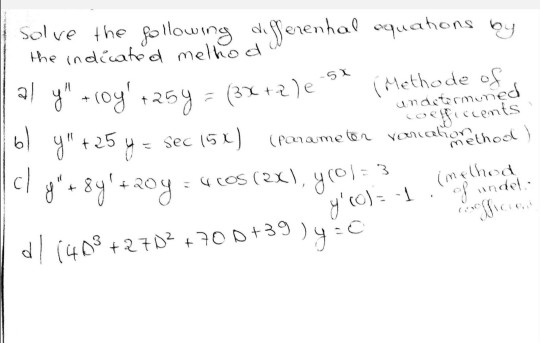 Solve the following differenhal equations by
the indicated method
a) y" + 10y' + 25y = (3x+2)e^-5x (Methode of
undetermined
coefficients
b) y" + 25 y = sec (5x) (parameter variation
method)
c) y" + 8y' + 20y = 4 cos (2x), y(0) = 3 (method
y'(0) = -1 . of undet.
coefficien
d) (4D³ + 27D² + 70D + 39) y = 0